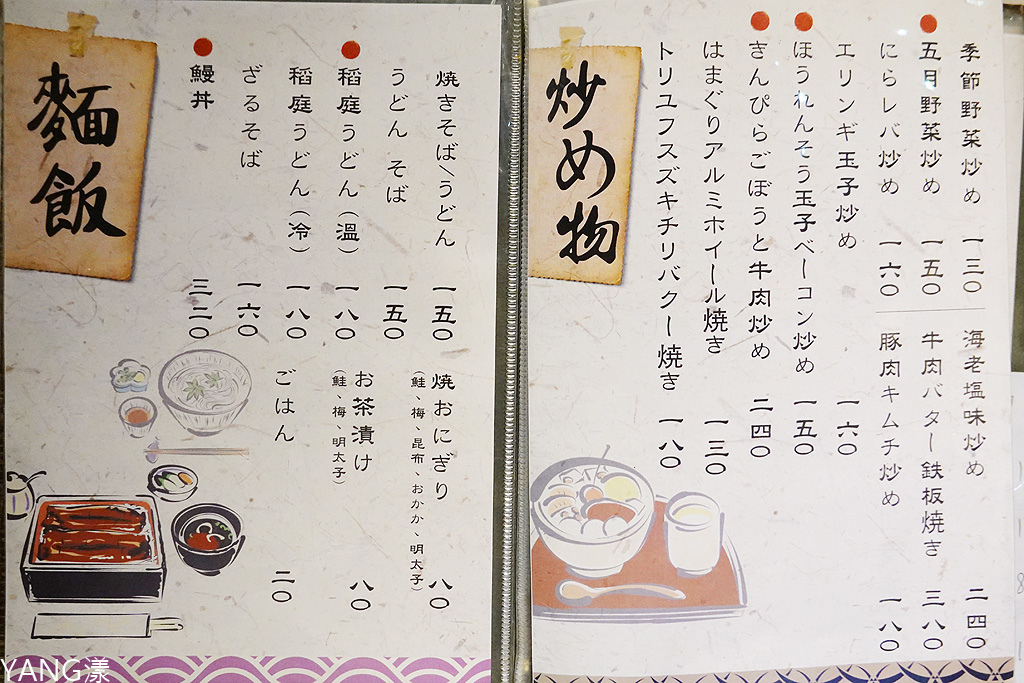 炒め物
季節野菜炒め 一三〇
五月野菜炒め 一五〇
にらレバ炒め 一六〇
エリンギ玉子炒め 一六〇
ほうれんそう玉子ベーコン炒め 一五〇
きんぴらごぼうと牛肉炒め 二四〇
はまぐりアルミホイール焼き 一三〇
トリュフスズキチリバター焼き 一八〇
海老塩味炒め 二四〇
牛肉バター鉄板焼き 三八〇
豚肉キムチ炒め 一八〇
麵飯
焼きそば\うどん 一五〇
うどん そば 一五〇
稻庭うどん(溫) 一八〇
稻庭うどん(冷) 一八〇
ざるそば 一六〇
鰻丼 三二〇
焼おにぎり 八〇
(鮭、梅、昆布、おかか、明太子)
お茶漬け 八〇
(鮭、梅、明太子)
ごはん 二〇
YANG漾